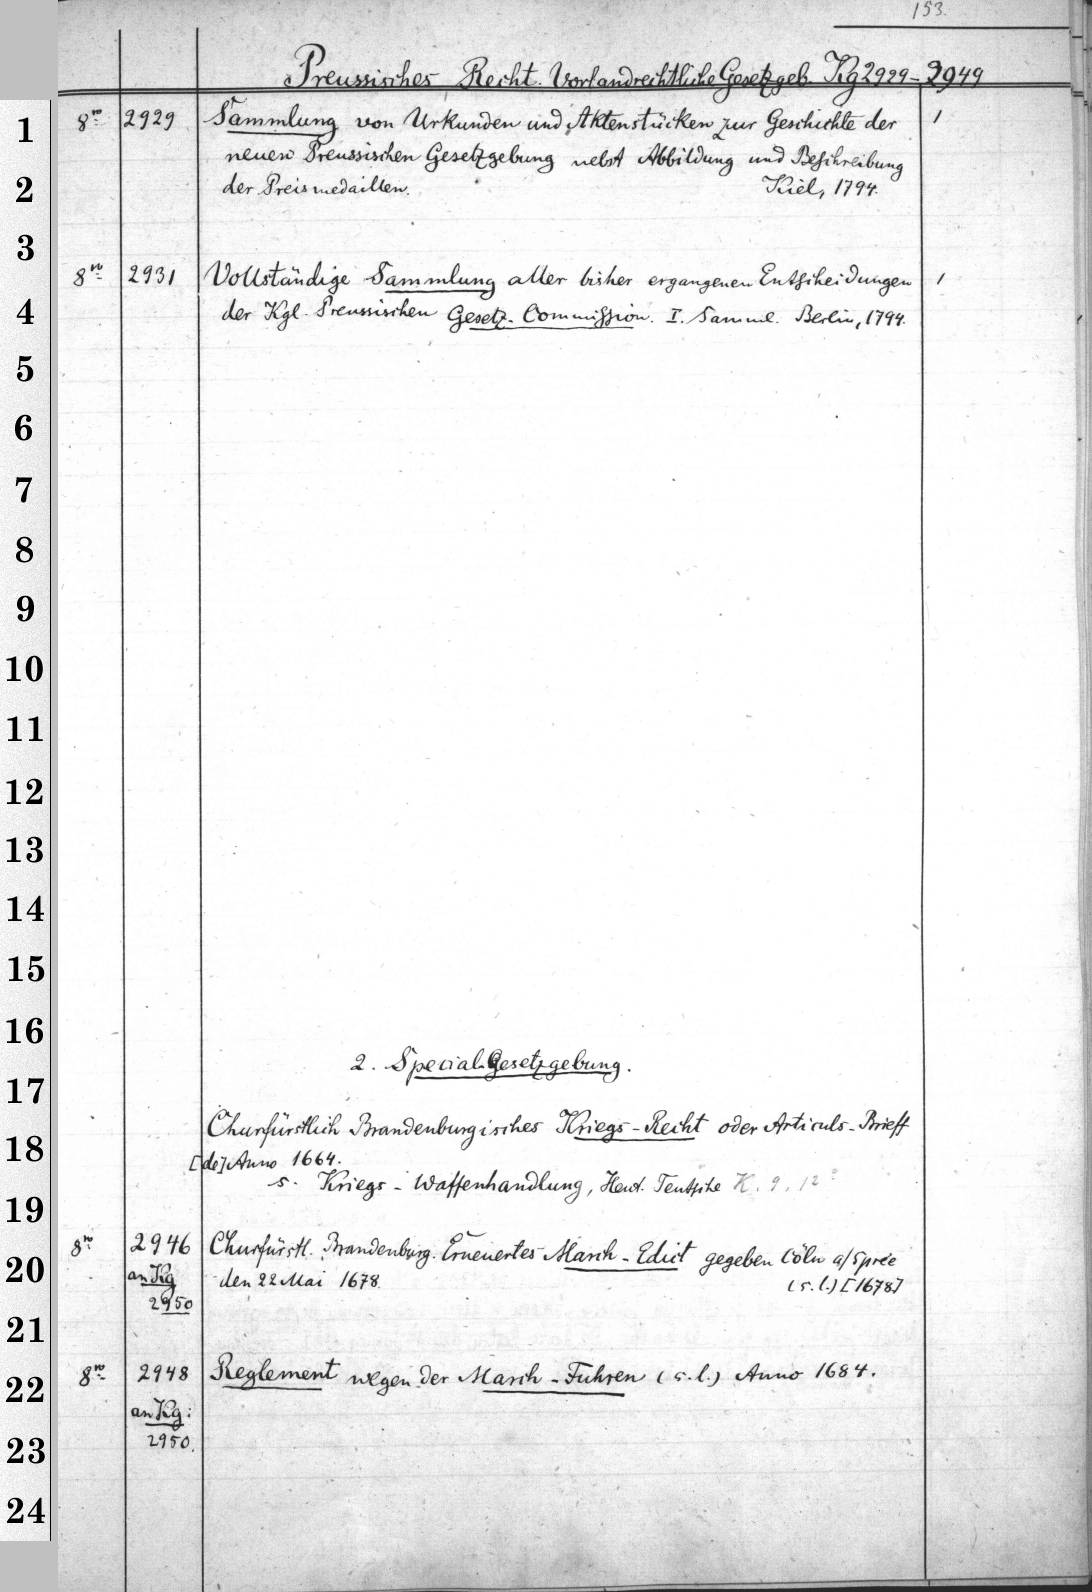 153.
Preussisches Recht. Vorlandrechtliche Gesetzgeb. Kg 2929-2949
8º 2929 Sammlung von Urkunden und Aktenstücken zur Geschichte der 1
neuen Preussischen Gesetzgebung nebst Abbildung und Beschreibung
der Preismedaillen. Kiel, 1794.
8º 2931 Vollständige Sammlung aller bisher ergangenen Entscheidungen 1
der Kgl. Preussischen Gesetz-Commission. I. Samml. Berlin, 1794.
2. Special-Gesetzgebung.
Churfürstlich Brandenburgisches Kriegs-Recht oder Articuls-Brieff
[de] Anno 1664.
s. Kriegs-Waffenhandlung, Heut. Teutsche K. 9. 12º
8º 2946 Churfürstl. Brandenburg. Erneuertes March-Edict gegeben Cöln a/Spree
an Kg den 22 Mai 1678. (s.l.) [1678]
2950
8º 2948 Reglement wegen der March-Fuhren (s.l.) Anno 1684.
an Kg:
2950.
1
2
3
4
5
6
7
8
9
10
11
12
13
14
15
16
17
18
19
20
21
22
23
24